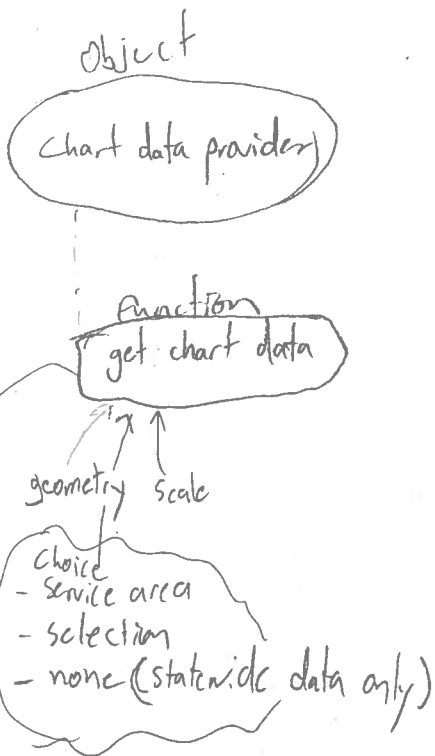 Object
Chart data provider
Function
get chart data
geometry scale
Choice
- service area
- selection
- none (statewide data only)